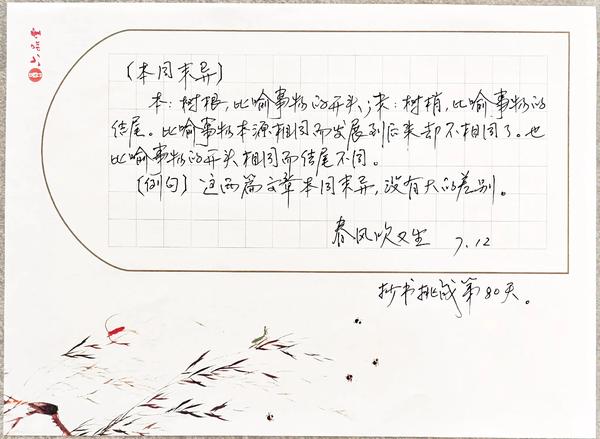 〔本同末异〕
本：树根，比喻事物的开头；末：树梢，比喻事物的
结尾。比喻事物本源相同而发展到后来却不相同了。也
比喻事物的开头相同而结尾不同。
〔例句〕这两篇文章本同末异，没有大的差别。
春风吹又生 7.12
抄书挑战第80天。